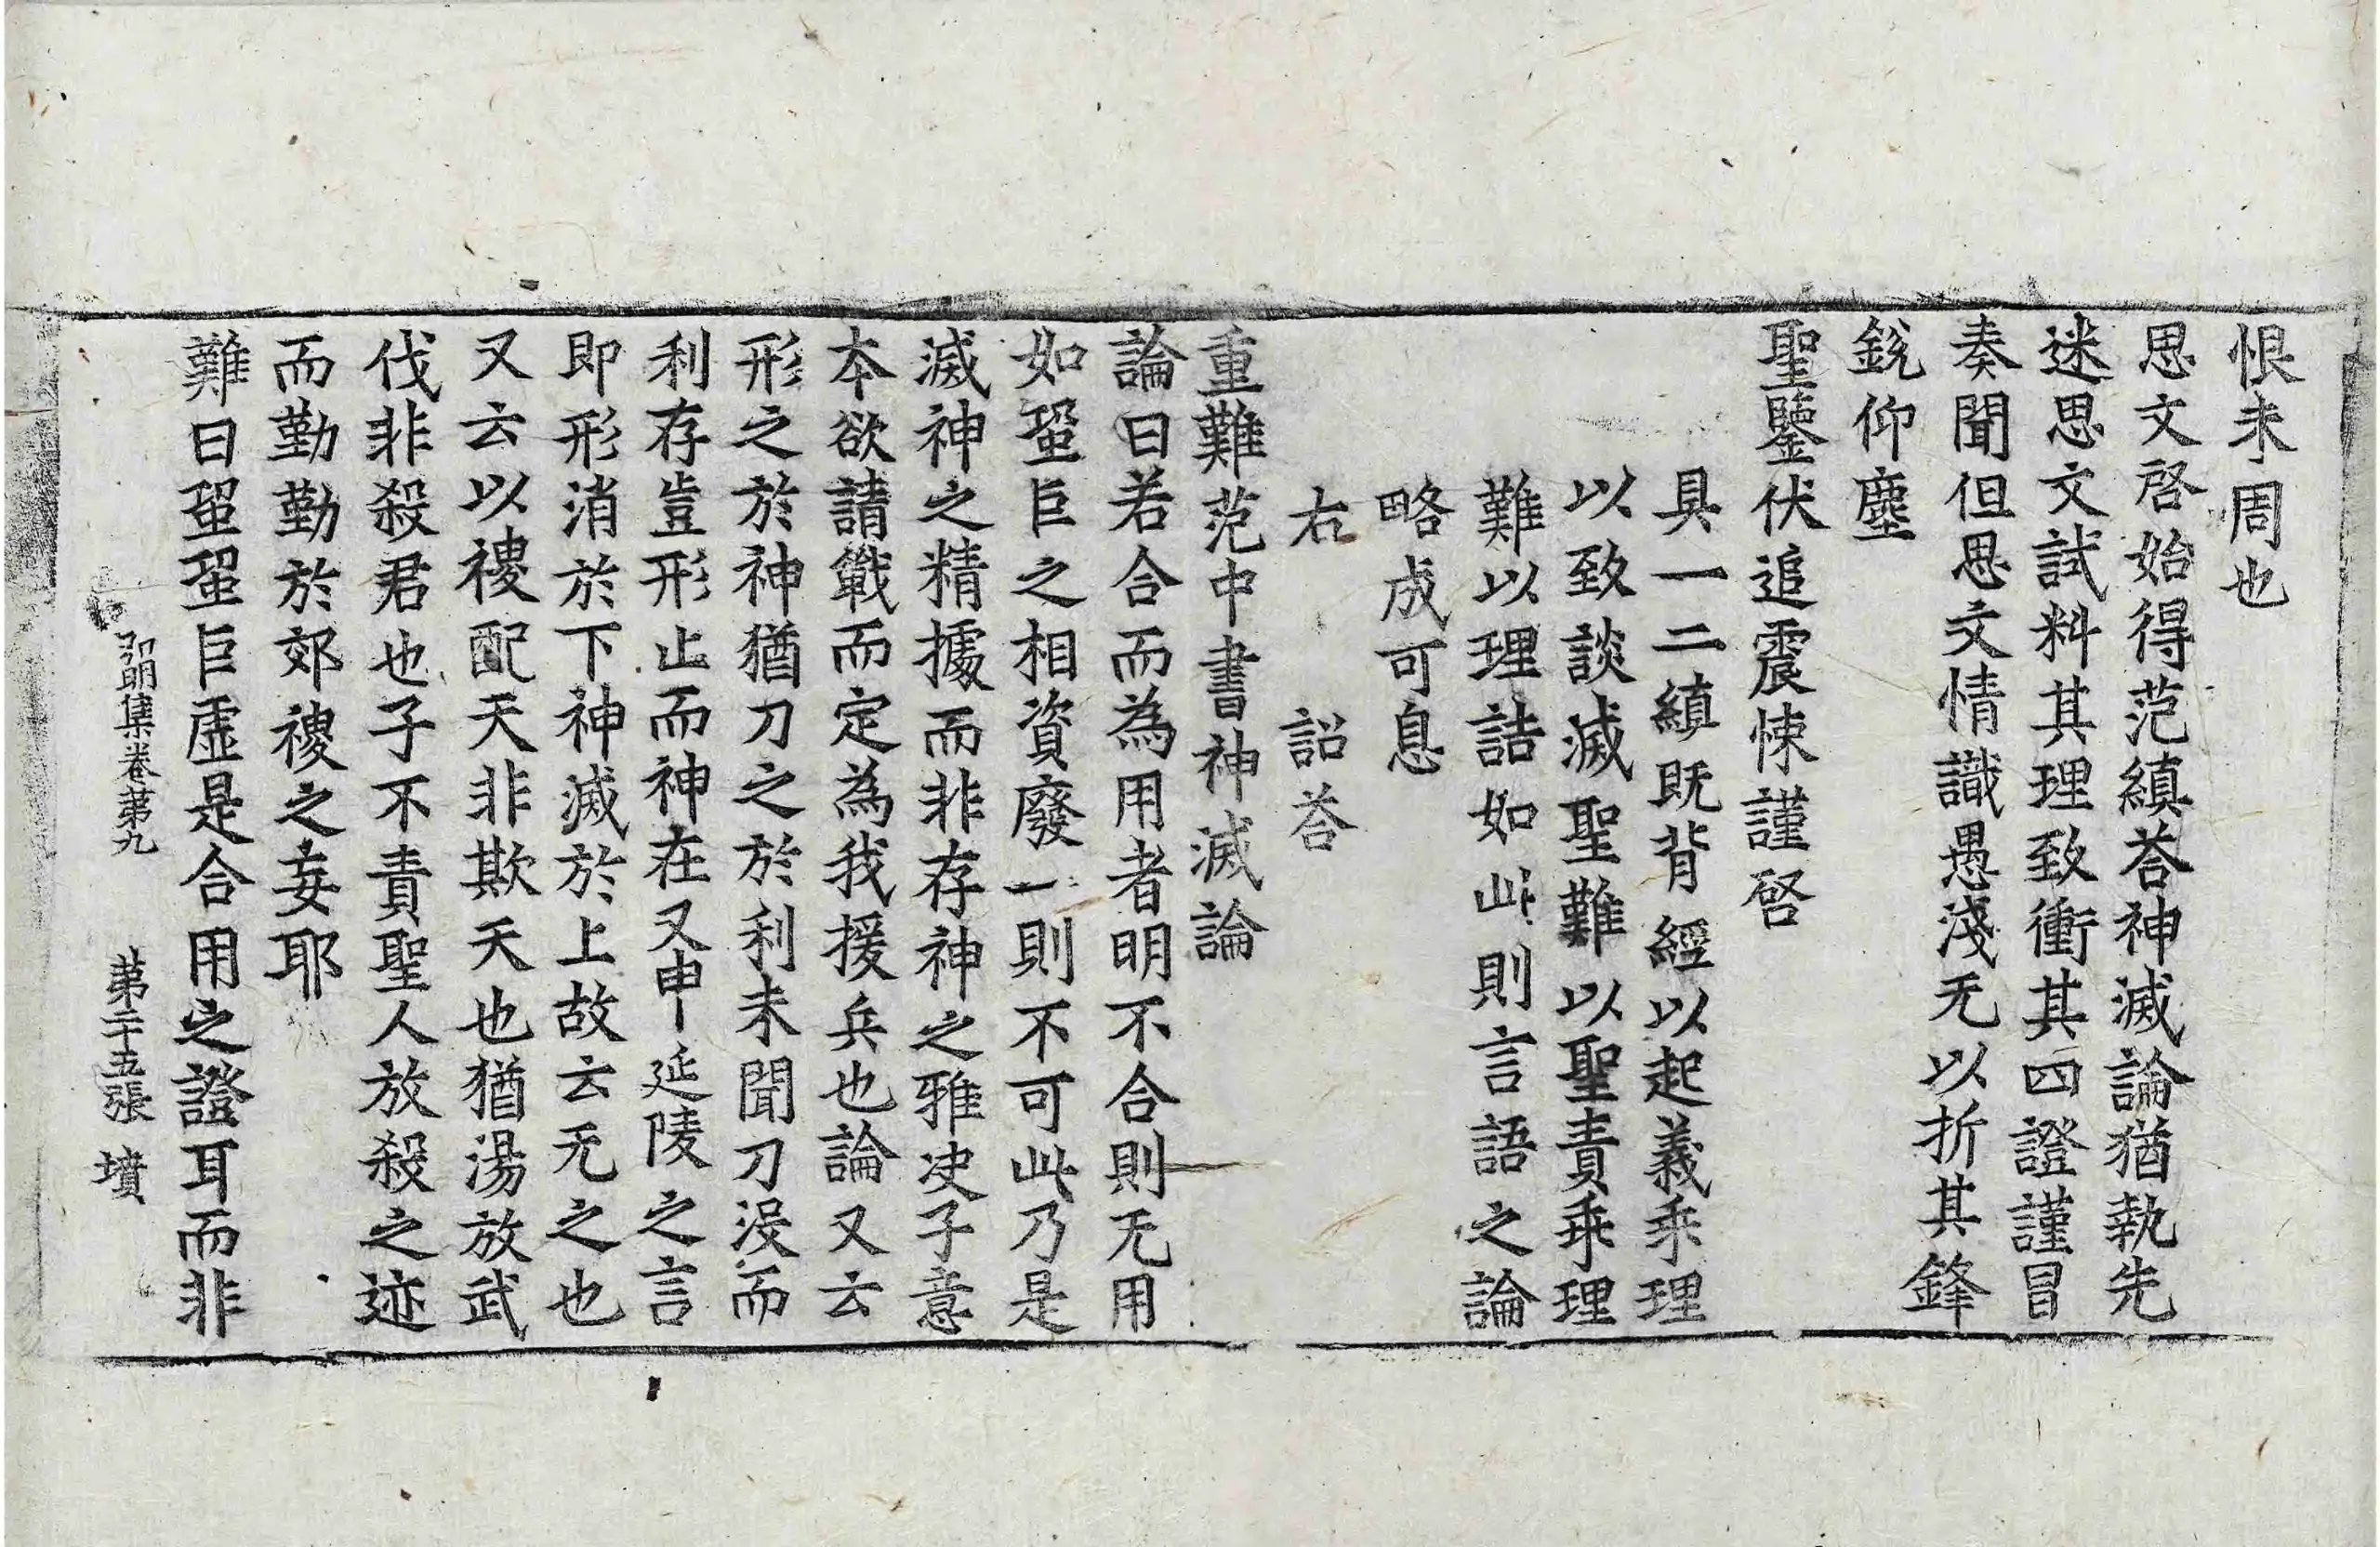 恨未周也
思文啓始得范縝荅神滅論猶執先
迷思文試料其理致衝其四證謹冒
奏聞但思文情識愚淺无以折其鋒
銳仰塵
聖鑒伏追震悚謹啓
具一二縝既背經以起義乖理
以致談滅聖難以聖責乖理
難以理詰如此則言語之論
略成可息
右　詔荅
重難范中書神滅論
論曰若合而為用者明不合則无用
如蛩巨之相資廢一則不可此乃是
滅神之精據而非存神之雅决子意
本欲請戰而定為我援兵也論又云
形之於神猶刀之於利未聞刀沒而
利存豈形止而神在又申延陵之言
即形消於下神滅於上故云无之也
又云以稷配天非欺天也猶湯放武
伐非殺君也子不責聖人放殺之迹
而勤勤於郊稷之妄耶
難曰蛩蛩巨虛是合用之證耳而非
弘明集卷苐九　苐二十五張　墳